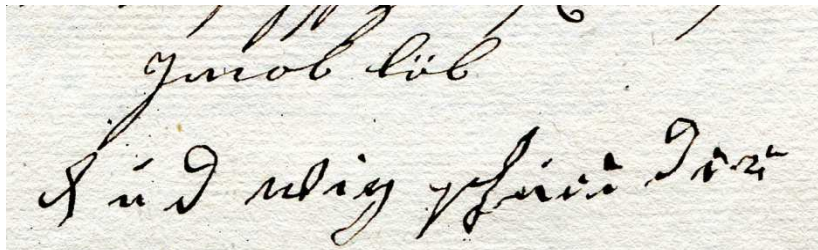 Jacob Löb
Lud wig schnei der